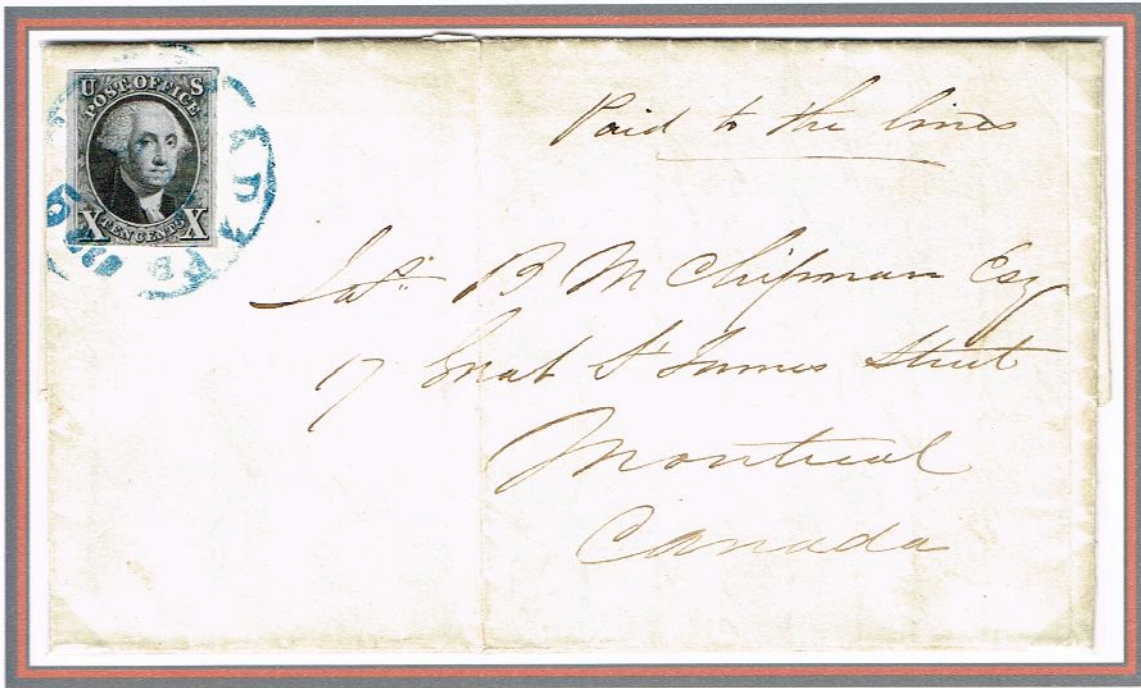 U S
POST OFFICE
X TEN CENTS X
5
Paid to the lines
B M Chipman Esq
17 Great St James Street
Montreal
Canada